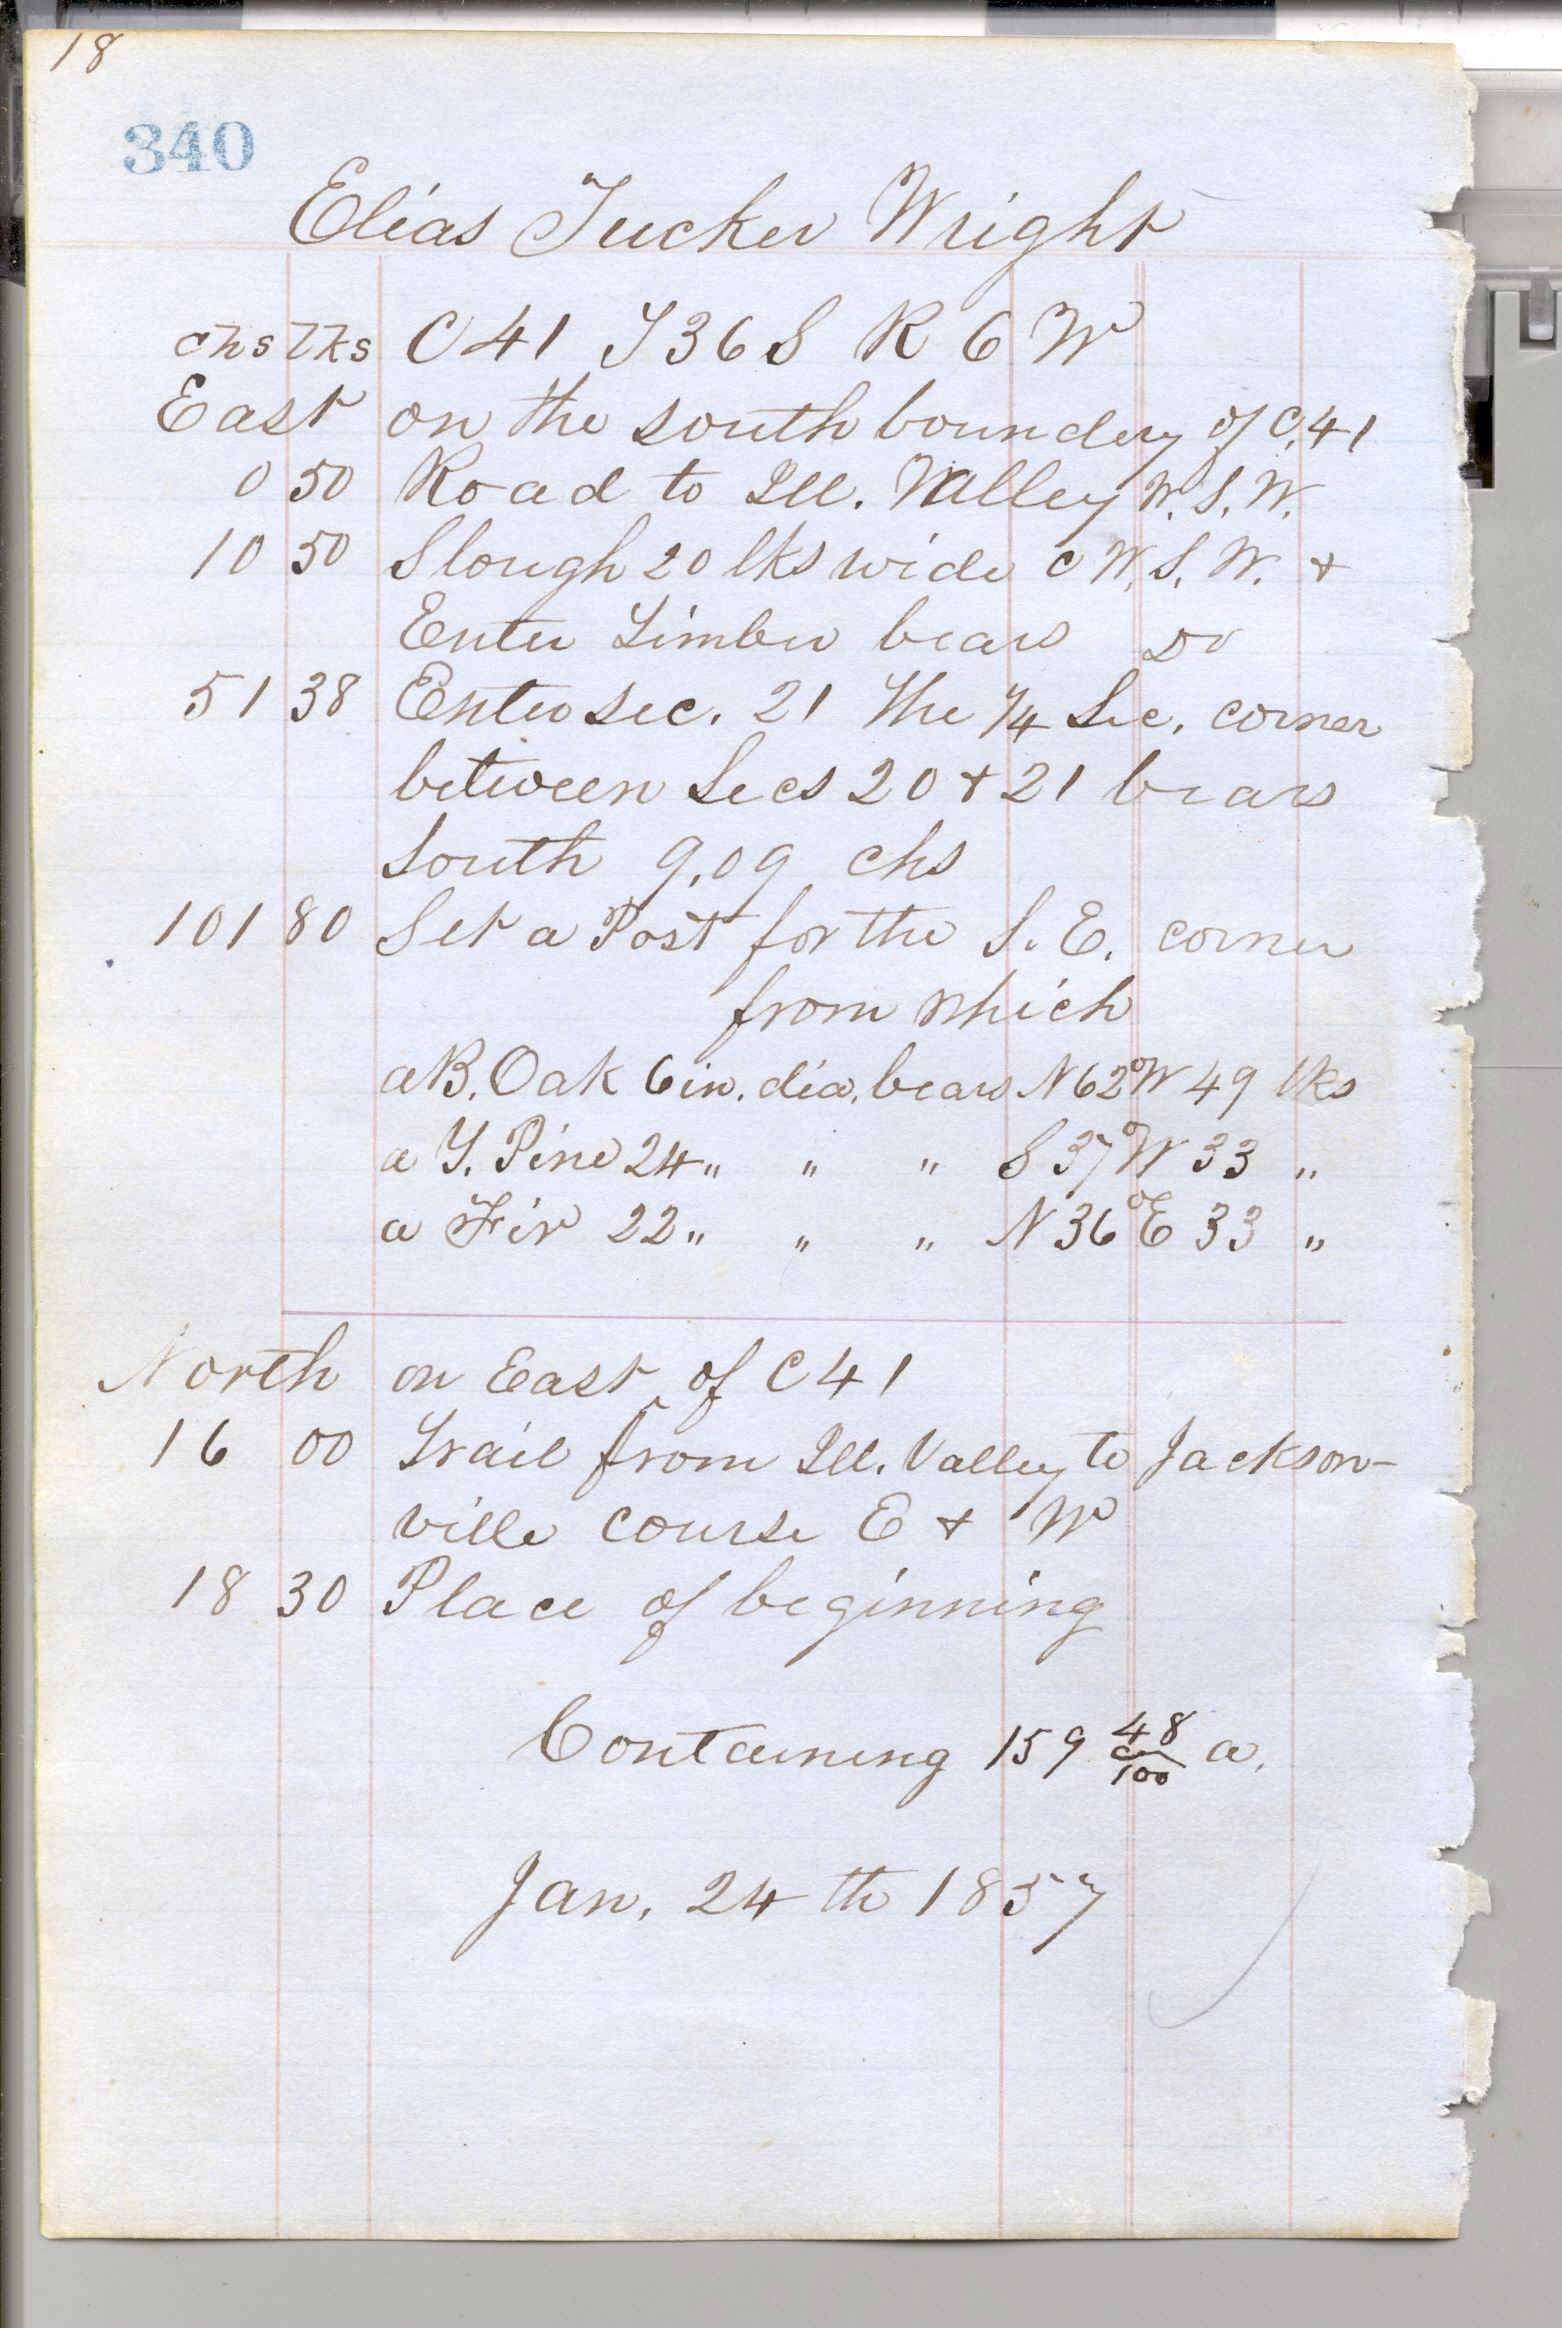 18
340
Elias Tucker Wright
chs lks C 41 T 36 S R 6 W
East on the south boundery of C. 41
0 50 Road to Ill. Valley W. S. W.
10 50 Slough 20 lks wide c W. S. W. +
Enter Timber bears Do
51 38 Enter sec. 21 The 1/4 Sec. corner
between Secs 20 + 21 bears
South 9.09 chs
101 80 Set a Post for the S. E. corner
from which
a B. Oak 6 in. dia. bears N 62° W 49 lks
a Y. Pine 24 " " " S 37° W 33 "
a Fir 22 " " " N 36° E 33 "
North on East of C 41
16 00 Trail from Ill. Valley to Jackson-
ville course E + W
18 30 Place of beginning
Containing 159 48/100 a.
Jan. 24th 1857